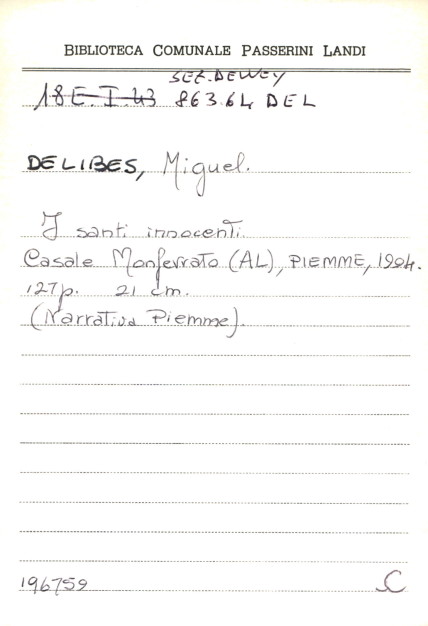 BIBLIOTECA COMUNALE PASSERINI LANDI
SEZ. DEWEY
18 E. I. 43 863.64 DEL
DELIBES, Miguel.
I santi innocenti
Casale Monferrato (AL), PIEMME, 1994.
127p. 21 cm.
(Narrativa Piemme).
196759 C